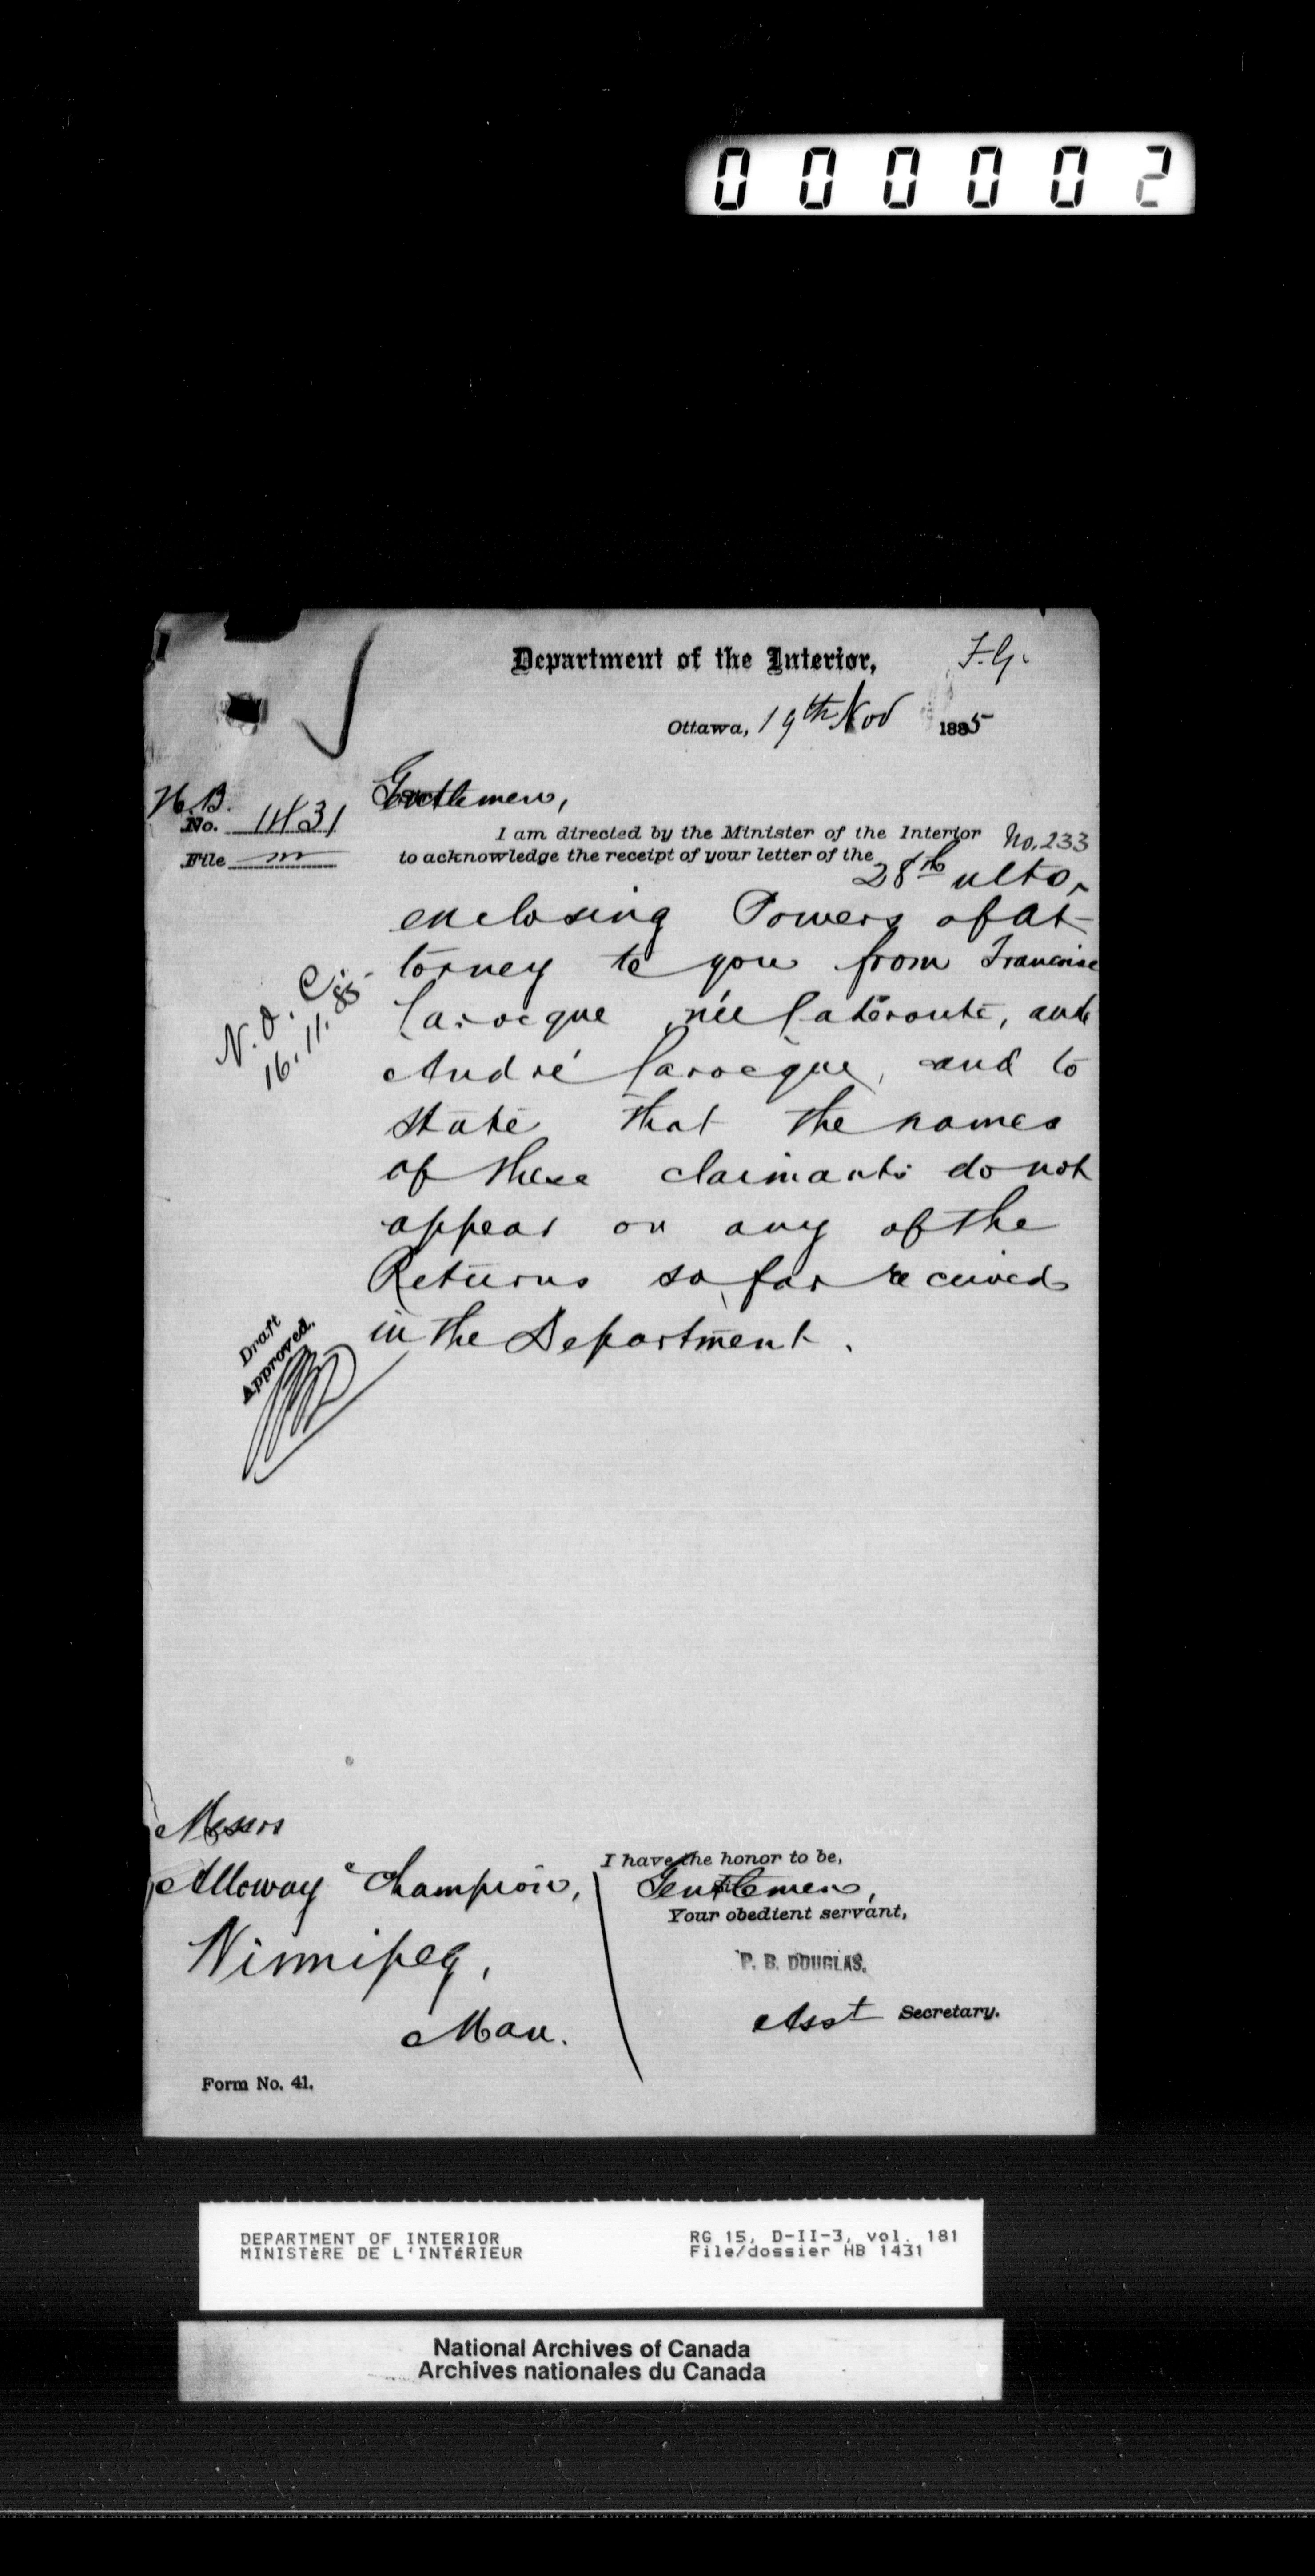 000002
Department of the Interior,
F.G.
Ottawa, 19th Nov 1885
H.B.
No. 1431
File
Gentlemen,
I am directed by the Minister of the Interior
No. 233
to acknowledge the receipt of your letter of the
28th ulto,
enclosing Powers of At-
torney to you from Francoise
Larocque née Laderoute, and
André Larocque, and to
state that the names
of these claimants do not
appear on any of the
Returns so far received
in the Department.
N.O.C.
16.11.85
Draft
Approved.
Messrs
Alloway Champion,
Winnipeg,
Man.
I have the honor to be,
Gentlemen,
Your obedient servant,
P. B. DOUGLAS.
Asst Secretary.
Form No. 41.
DEPARTMENT OF INTERIOR
MINISTèRE DE L'INTéRIEUR
RG 15, D-II-3, vol. 181
File/dossier HB 1431
National Archives of Canada
Archives nationales du Canada